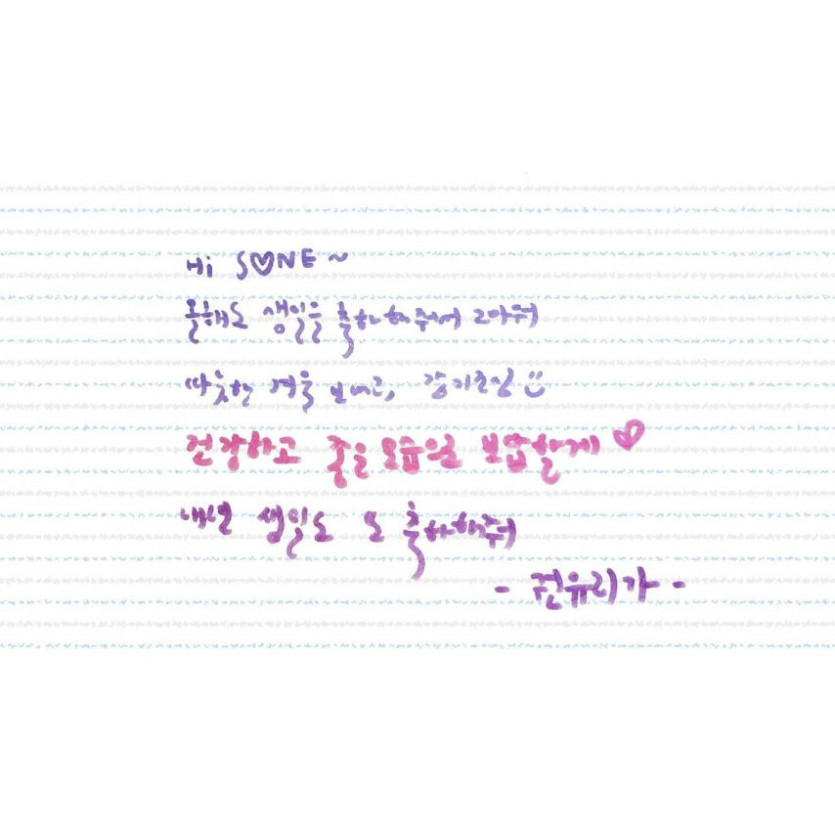 Hi S♡NE~
올해도 생일을 축하해줘서 고마워
따뜻한 겨울 보내고, 감기조심 ☺
건강하고 좋은모습으로 보답할게 ♡
내년 생일도 또 축하해줘
- 권유리가 -